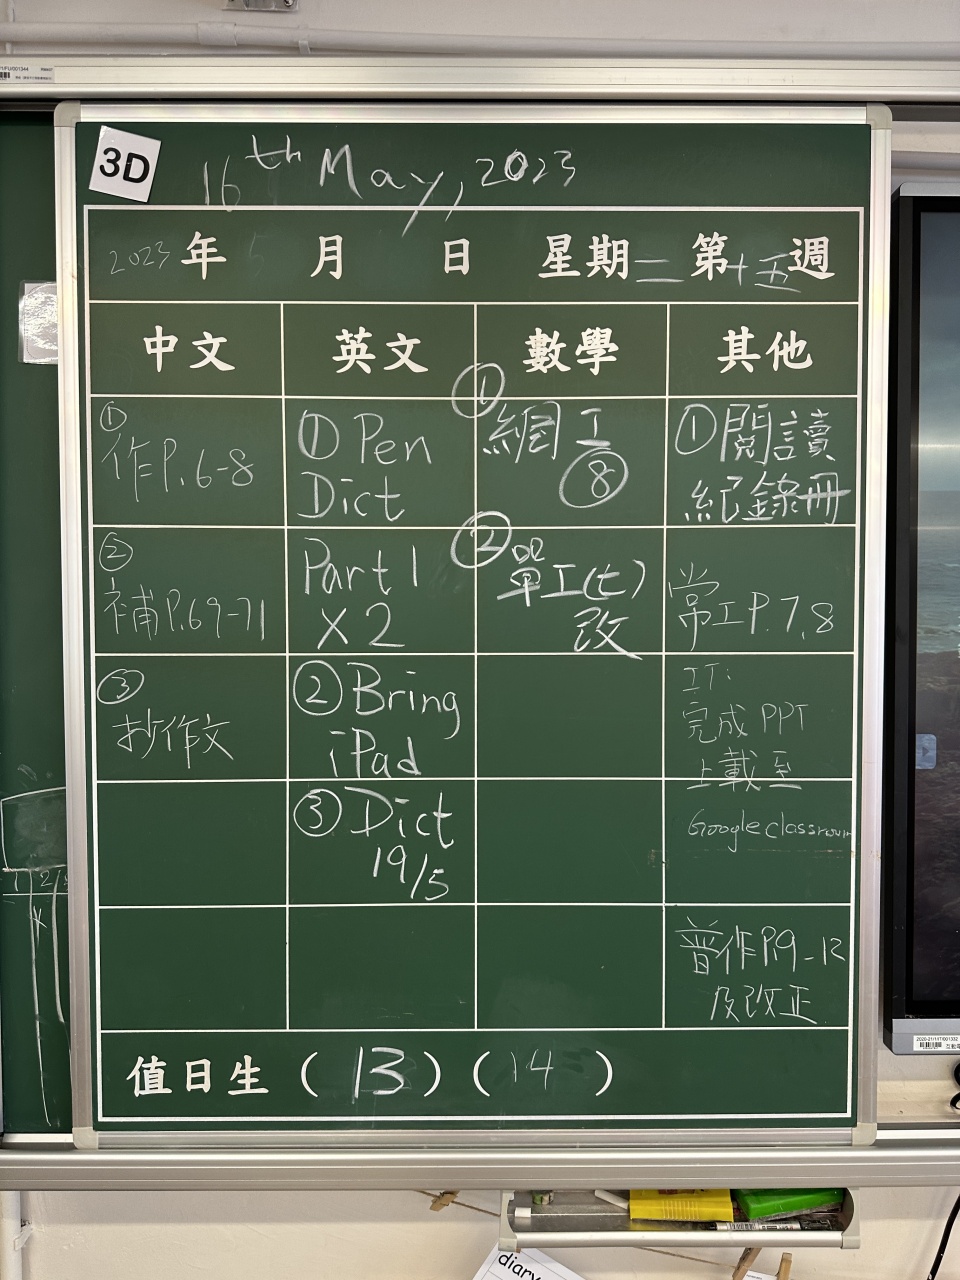 3D
16th May, 2023
2023年 5月 日 星期二 第十五週
中文 英文 數學 其他
① 作P.6-8
② 補P.69-71
③ 抄作文
① Pen
Dict
Part 1
X 2
② Bring
iPad
③ Dict
19/5
① 網工
⑧
② 單工(七)
改
① 閱讀
紀錄冊
常工P.7,8
IT:
完成 PPT
上載至
Google classroom
普作P.9-12
及改正
值日生 (13) (14)
diary